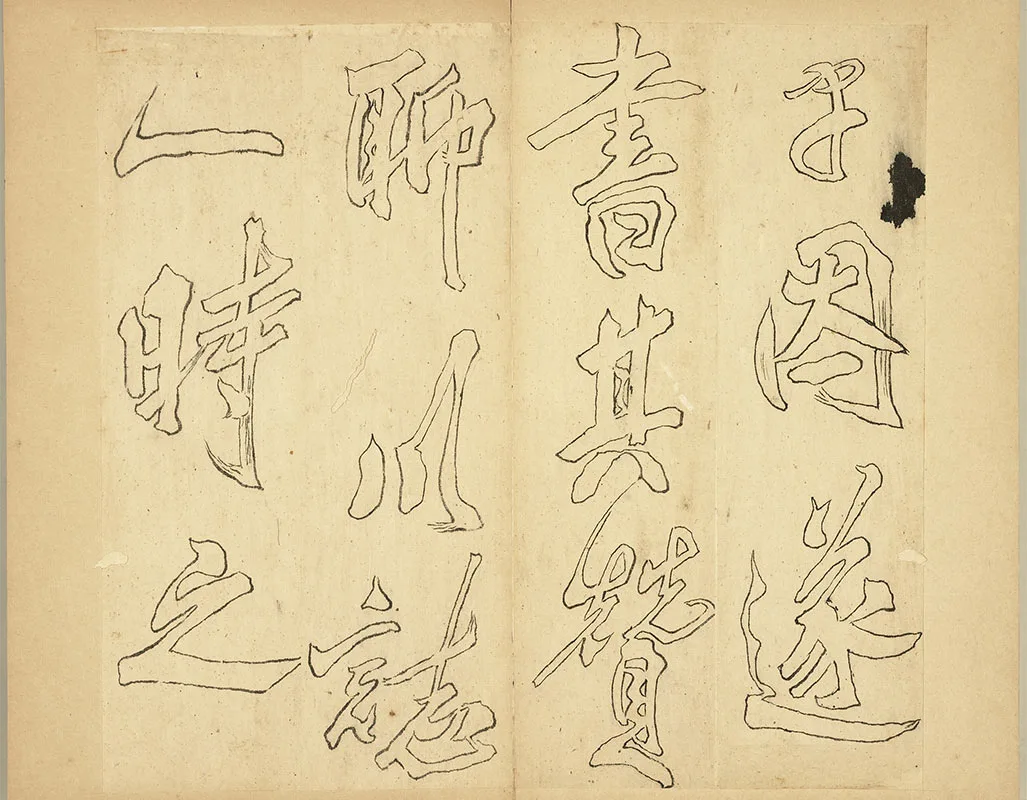 子因遂
書其贊
聊以誌
一時之